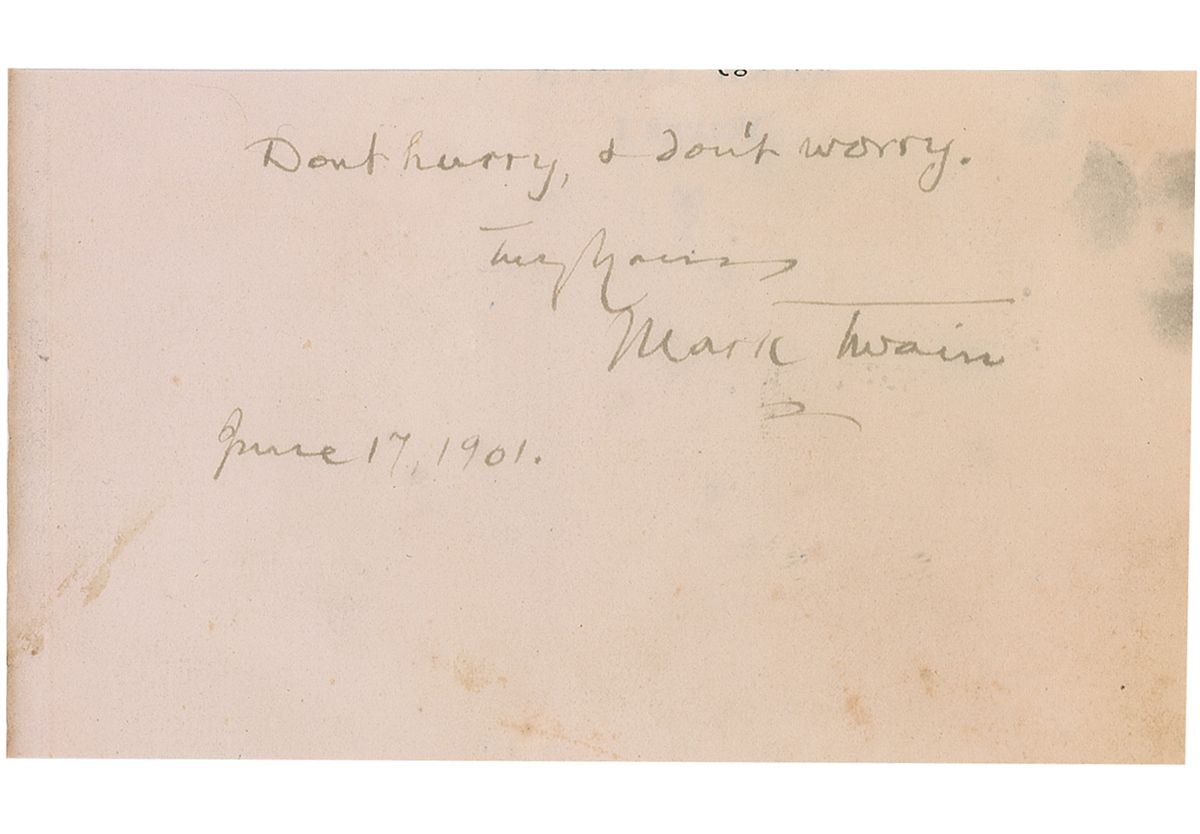 Dont hurry, & don't worry.
Truly Yours
Mark Twain
June 17, 1901.